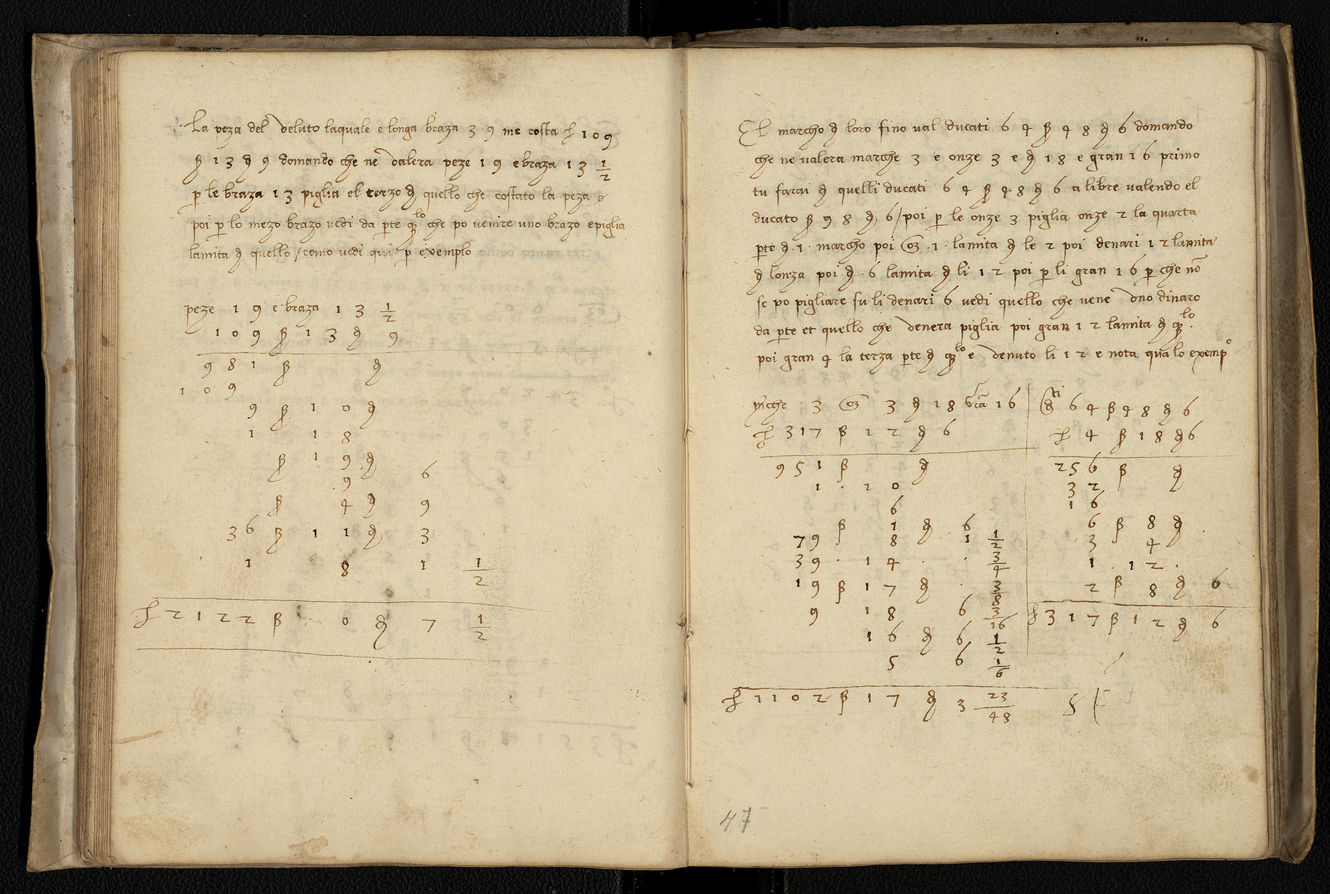 La peza del veluto laquale e longa braza 3 9 me costa £ 1 0 9
ß 1 3 ₰ 9 domando che ne valera peze 1 9 e braza 1 3 1/2
p le braza 1 3 piglia el terzo ₰ quello che costato la peza e
poi p lo mezo brazo vedi da pte qlo che po venire uno brazo e piglia
lamita ₰ quello / como vedi qui p exemplo
peze 1 9 e braza 1 3 1/2
1 0 9 ß 1 3 ₰ 9
9 8 1 ß ₰
1 0 9
9 ß 1 0 ₰
1 1 8
ß 1 9 ₰
9 6
ß 4 ₰ 9
3 6 ß 1 1 ₰ 3
1 8 1 1/2
£ 2 1 2 2 ß 0 ₰ 7 1/2
El marcho ₰ loro fino val ducati 6 4 ß 4 8 ₰ 6 domando
che ne valera marche 3 e onze 3 e ₰ 1 8 e gran 1 6 primo
tu farai ₰ quelli ducati 6 4 ß 4 8 ₰ 6 a libre valendo el
ducato ß 9 8 ₰ 6 / poi p le onze 3 piglia onze 2 la quarta
pte ₰ · 1 · marcho poi oz · 1 · lamita ₰ le 2 poi denari 1 2 lamita
₰ lonza poi ₰ · 6 lamita ₰ li 1 2 poi p li gran 1 6 p che nō
se po pigliare su li denari 6 vedi quello che vene uno dinaro
da pte et quello che venera piglia poi gran 1 2 lamita ₰ qlo ·
poi gran 4 la terza pte ₰ qlo e venuto li 1 2 e nota qua lo exempo
mche 3 oz 3 ₰ 1 8 gra 1 6
£ 3 1 7 ß 1 2 ₰ 6
9 5 1 ß ₰
1 · 2 0
6
ß 1 ₰ 6
7 9 8 1 1/2
3 9 · 1 4 · 3/4
1 9 ß 1 7 ₰ · 3/8
9 1 8 6 3/16
1 6 ₰ 6 1/2
5 6 1/6
£ 1 1 0 2 ß 1 7 ₰ 3 23/48
dti 6 4 ß 4 8 ₰ 6
£ 4 ß 1 8 ₰ 6
2 5 6 ß ₰
3 2
1 6
6 ß 8 ₰
3 4
1 · 1 2 ·
2 ß 8 ₰ 6
£ 3 1 7 ß 1 2 ₰ 6
47